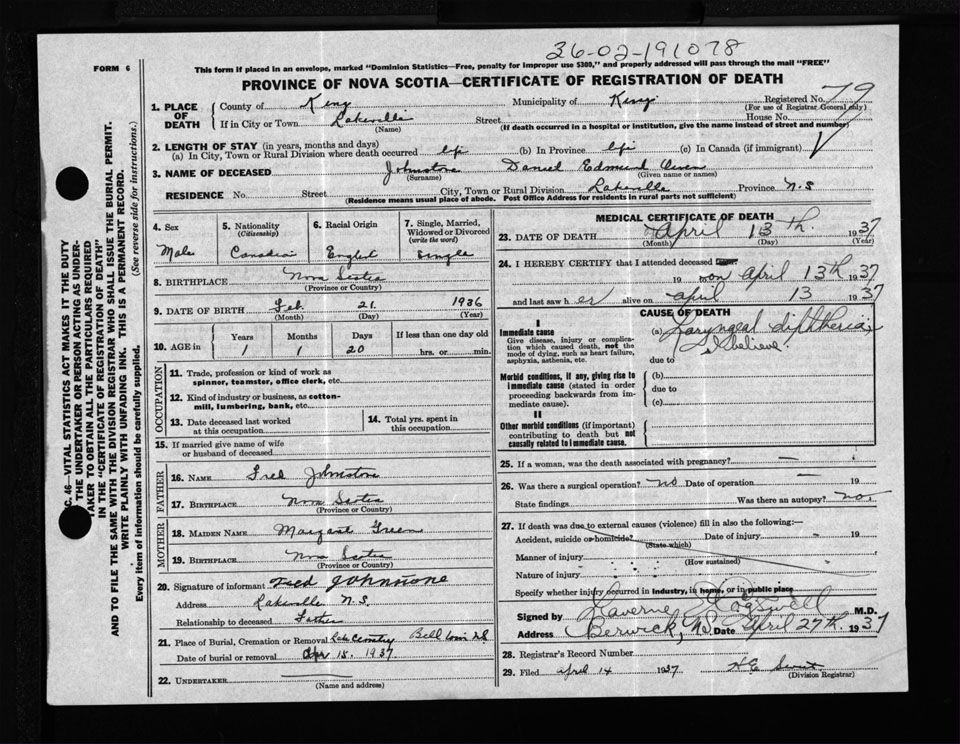 36-02-191078
FORM 6
This form if placed in an envelope, marked "Dominion Statistics—Free, penalty for improper use $300," and properly addressed will pass through the mail "FREE"
PROVINCE OF NOVA SCOTIA—CERTIFICATE OF REGISTRATION OF DEATH
1. PLACE OF DEATH
County of Kings Municipality of Kings Registered No. 79
(For use of Registrar General only)
If in City or Town Lakeville Street House No.
(Name) (If death occurred in a hospital or institution, give the name instead of street and number)
2. LENGTH OF STAY (in years, months and days)
(a) In City, Town or Rural Division where death occurred life (b) In Province life (c) In Canada (if immigrant)
3. NAME OF DECEASED Johnstone Daniel Edmund
(Surname) (Given name or names)
RESIDENCE No. Street City, Town or Rural Division Lakeville Province N.S
(Residence means usual place of abode. Post Office Address for residents in rural parts not sufficient)
4. Sex
Male
5. Nationality
(Citizenship)
Canadian
6. Racial Origin
English
7. Single, Married, Widowed or Divorced
(write the word)
Single
8. BIRTHPLACE Nova Scotia
(Province or Country)
9. DATE OF BIRTH Feb. 21. 1936
(Month) (Day) (Year)
10. AGE in
Years Months Days If less than one day old
1 1 20 hrs. or min.
OCCUPATION
11. Trade, profession or kind of work as
spinner, teamster, office clerk, etc.
12. Kind of industry or business, as cotton-
mill, lumbering, bank, etc.
13. Date deceased last worked
at this occupation
14. Total yrs. spent in
this occupation
15. If married give name of wife
or husband of deceased
FATHER
16. NAME Fred Johnstone
17. BIRTHPLACE Nova Scotia
(Province or Country)
MOTHER
18. MAIDEN NAME Margaret Green
19. BIRTHPLACE Nova Scotia
(Province or Country)
20. Signature of informant Fred Johnstone
Address Lakeville N.S.
Relationship to deceased Father
21. Place of Burial, Cremation or Removal Cemetery
Date of burial or removal Apr 15. 1937
22. UNDERTAKER
(Name and address)
MEDICAL CERTIFICATE OF DEATH
23. DATE OF DEATH April 13th. 1937
(Month) (Day) (Year)
24. I HEREBY CERTIFY that I attended deceased
19 on April 13th 1937
and last saw h er alive on April 13 1937
CAUSE OF DEATH
I
Immediate cause
Give disease, injury or complica-
tion which caused death, not the
mode of dying, such as heart failure,
asphyxia, asthenia, etc.
(a) Laryngeal diphtheria,
I believe.
due to
Morbid conditions, if any, giving rise to
immediate cause (stated in order
proceeding backwards from im-
mediate cause).
(b)
due to
(c)
II
Other morbid conditions (if important)
contributing to death but not
causally related to immediate cause.
25. If a woman, was the death associated with pregnancy? —
26. Was there a surgical operation? no Date of operation — 19
State findings Was there an autopsy? no.
27. If death was due to external causes (violence) fill in also the following:—
Accident, suicide or homicide? Date of injury 19
(State which)
Manner of injury
(How sustained)
Nature of injury
Specify whether injury occurred in industry, in home, or in public place
Signed by Laverne Cogswell M.D.
Address Berwick, N.S. Date April 27th. 1937
28. Registrar's Record Number
29. Filed April 14 1937 H.E.
(Division Registrar)
C. 46—VITAL STATISTICS ACT MAKES IT THE DUTY
THE UNDERTAKER OR PERSON ACTING AS UNDER-
TAKER TO OBTAIN ALL THE PARTICULARS REQUIRED
IN THE "CERTIFICATE OF REGISTRATION OF DEATH"
AND TO FILE THE SAME WITH THE DIVISION REGISTRAR WHO SHALL ISSUE THE BURIAL PERMIT.
WRITE PLAINLY WITH UNFADING INK. THIS IS A PERMANENT RECORD.
Every item of information should be carefully supplied. (See reverse side for instructions.)